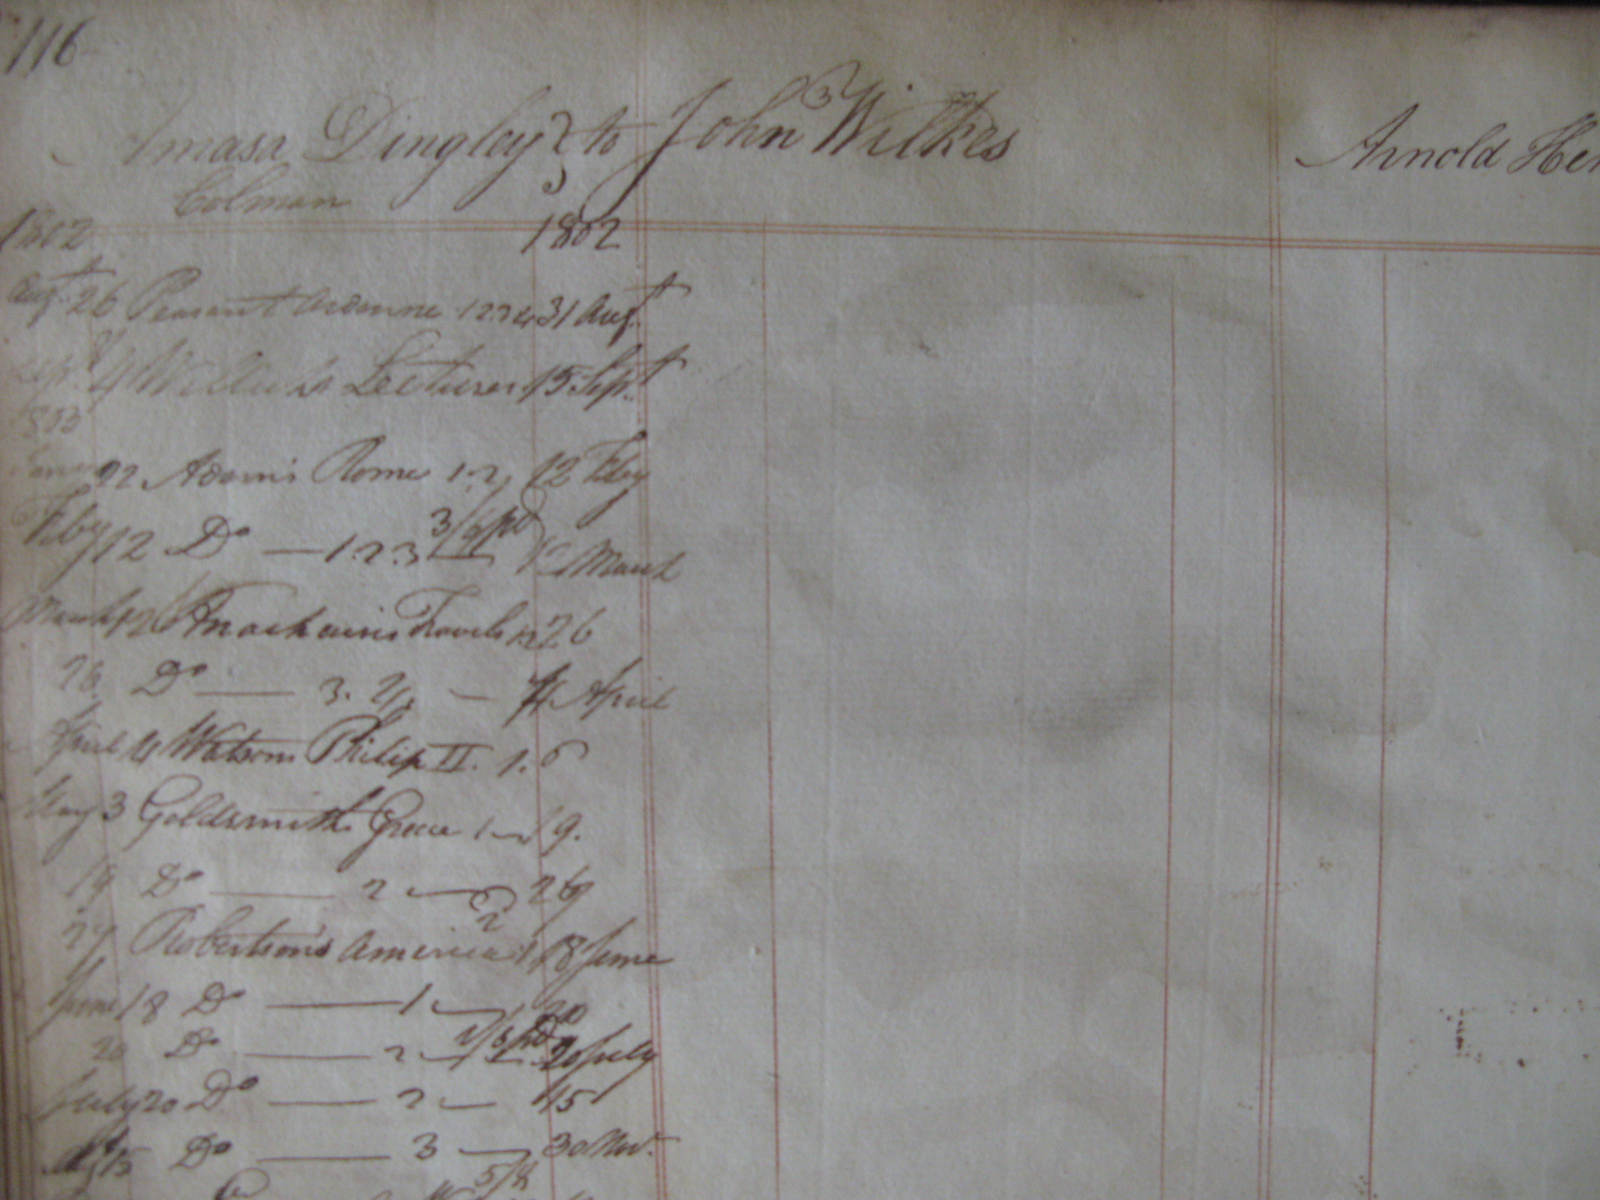 116
Amasa Dingley to John Wilkes
Arnold Her
Colman
1802 1802
Augt 26 Peasant Ardenne 1.2.3.4 31 Augt
4 Lectures 15 Sept
1803
22 Adam's Rome 1.2. 12 Feby
Feby 12 Do — 1.2.3 3/6 pd 12 March
March 12 Anacharsis Travels 1.2 26
26 Do — 3. 4 — 4 April
April 4 Watson Philip II. 1. 6
May 3 Goldsmith Greece 1 — 19.
19 Do — 2 — 26
27 Robertson's America 1 2 18 June
June 18 Do — 1 — 20
20 Do — 2 — pd 20 July
July 20 Do — 2 — 15
15 Do — 3 — 30 Nov.
5/8